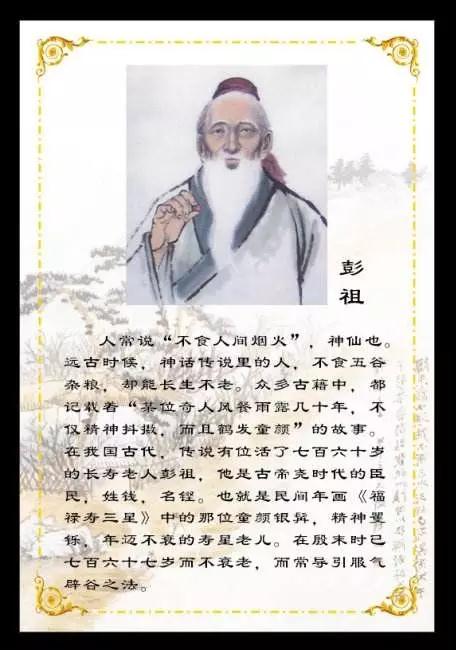 彭
祖
人常说“不食人间烟火”，神仙也。
远古时候，神话传说里的人，不食五谷
杂粮，却能长生不老。众多古籍中，都
记载着“某位奇人风餐雨露几十年，不
仅精神抖擞，而且鹤发童颜”的故事。
在我国古代，传说有位活了七百六十岁
的长寿老人彭祖，他是古帝尧时代的臣
民，姓钱，名铿。也就是民间年画《福
禄寿三星》中的那位童颜银髯，精神矍
铄，年迈不衰的寿星老儿。在殷末时已
七百六十七岁而不衰老，而常导引服气
辟谷之法。